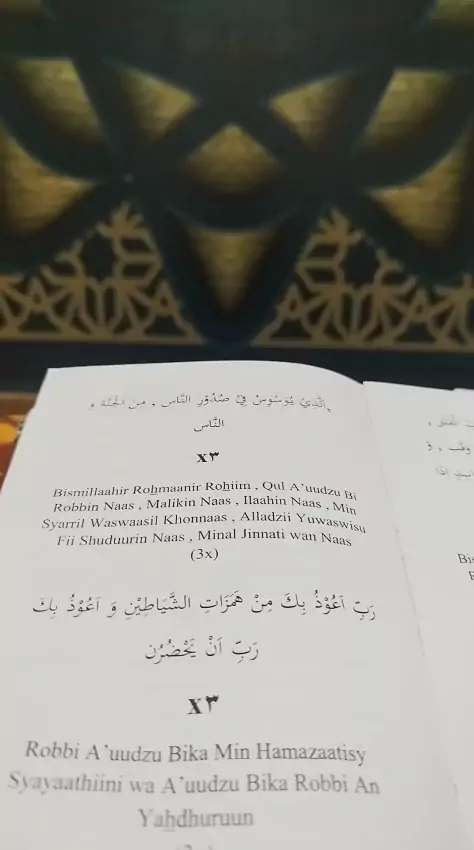 الَّذِيْ يُوَسْوِسُ فِيْ صُدُوْرِ النَّاسِ ، مِنَ الْجِنَّةِ وَ
النَّاسِ
x٣
Bismillaahir Rohmaanir Rohiim , Qul A'uudzu Bi
Robbin Naas , Malikin Naas , Ilaahin Naas , Min
Syarril Waswaasil Khonnaas , Alladzii Yuwaswisu
Fii Shuduurin Naas , Minal Jinnati wan Naas
(3x)
رَبِّ اَعُوْذُ بِكَ مِنْ هَمَزَاتِ الشَّيَاطِيْنِ وَ اَعُوْذُ بِكَ
رَبِّ اَنْ يَحْضُرُن
x٣
Robbi A'uudzu Bika Min Hamazaatisy
Syayaathiini wa A'uudzu Bika Robbi An
Yahdhuruun